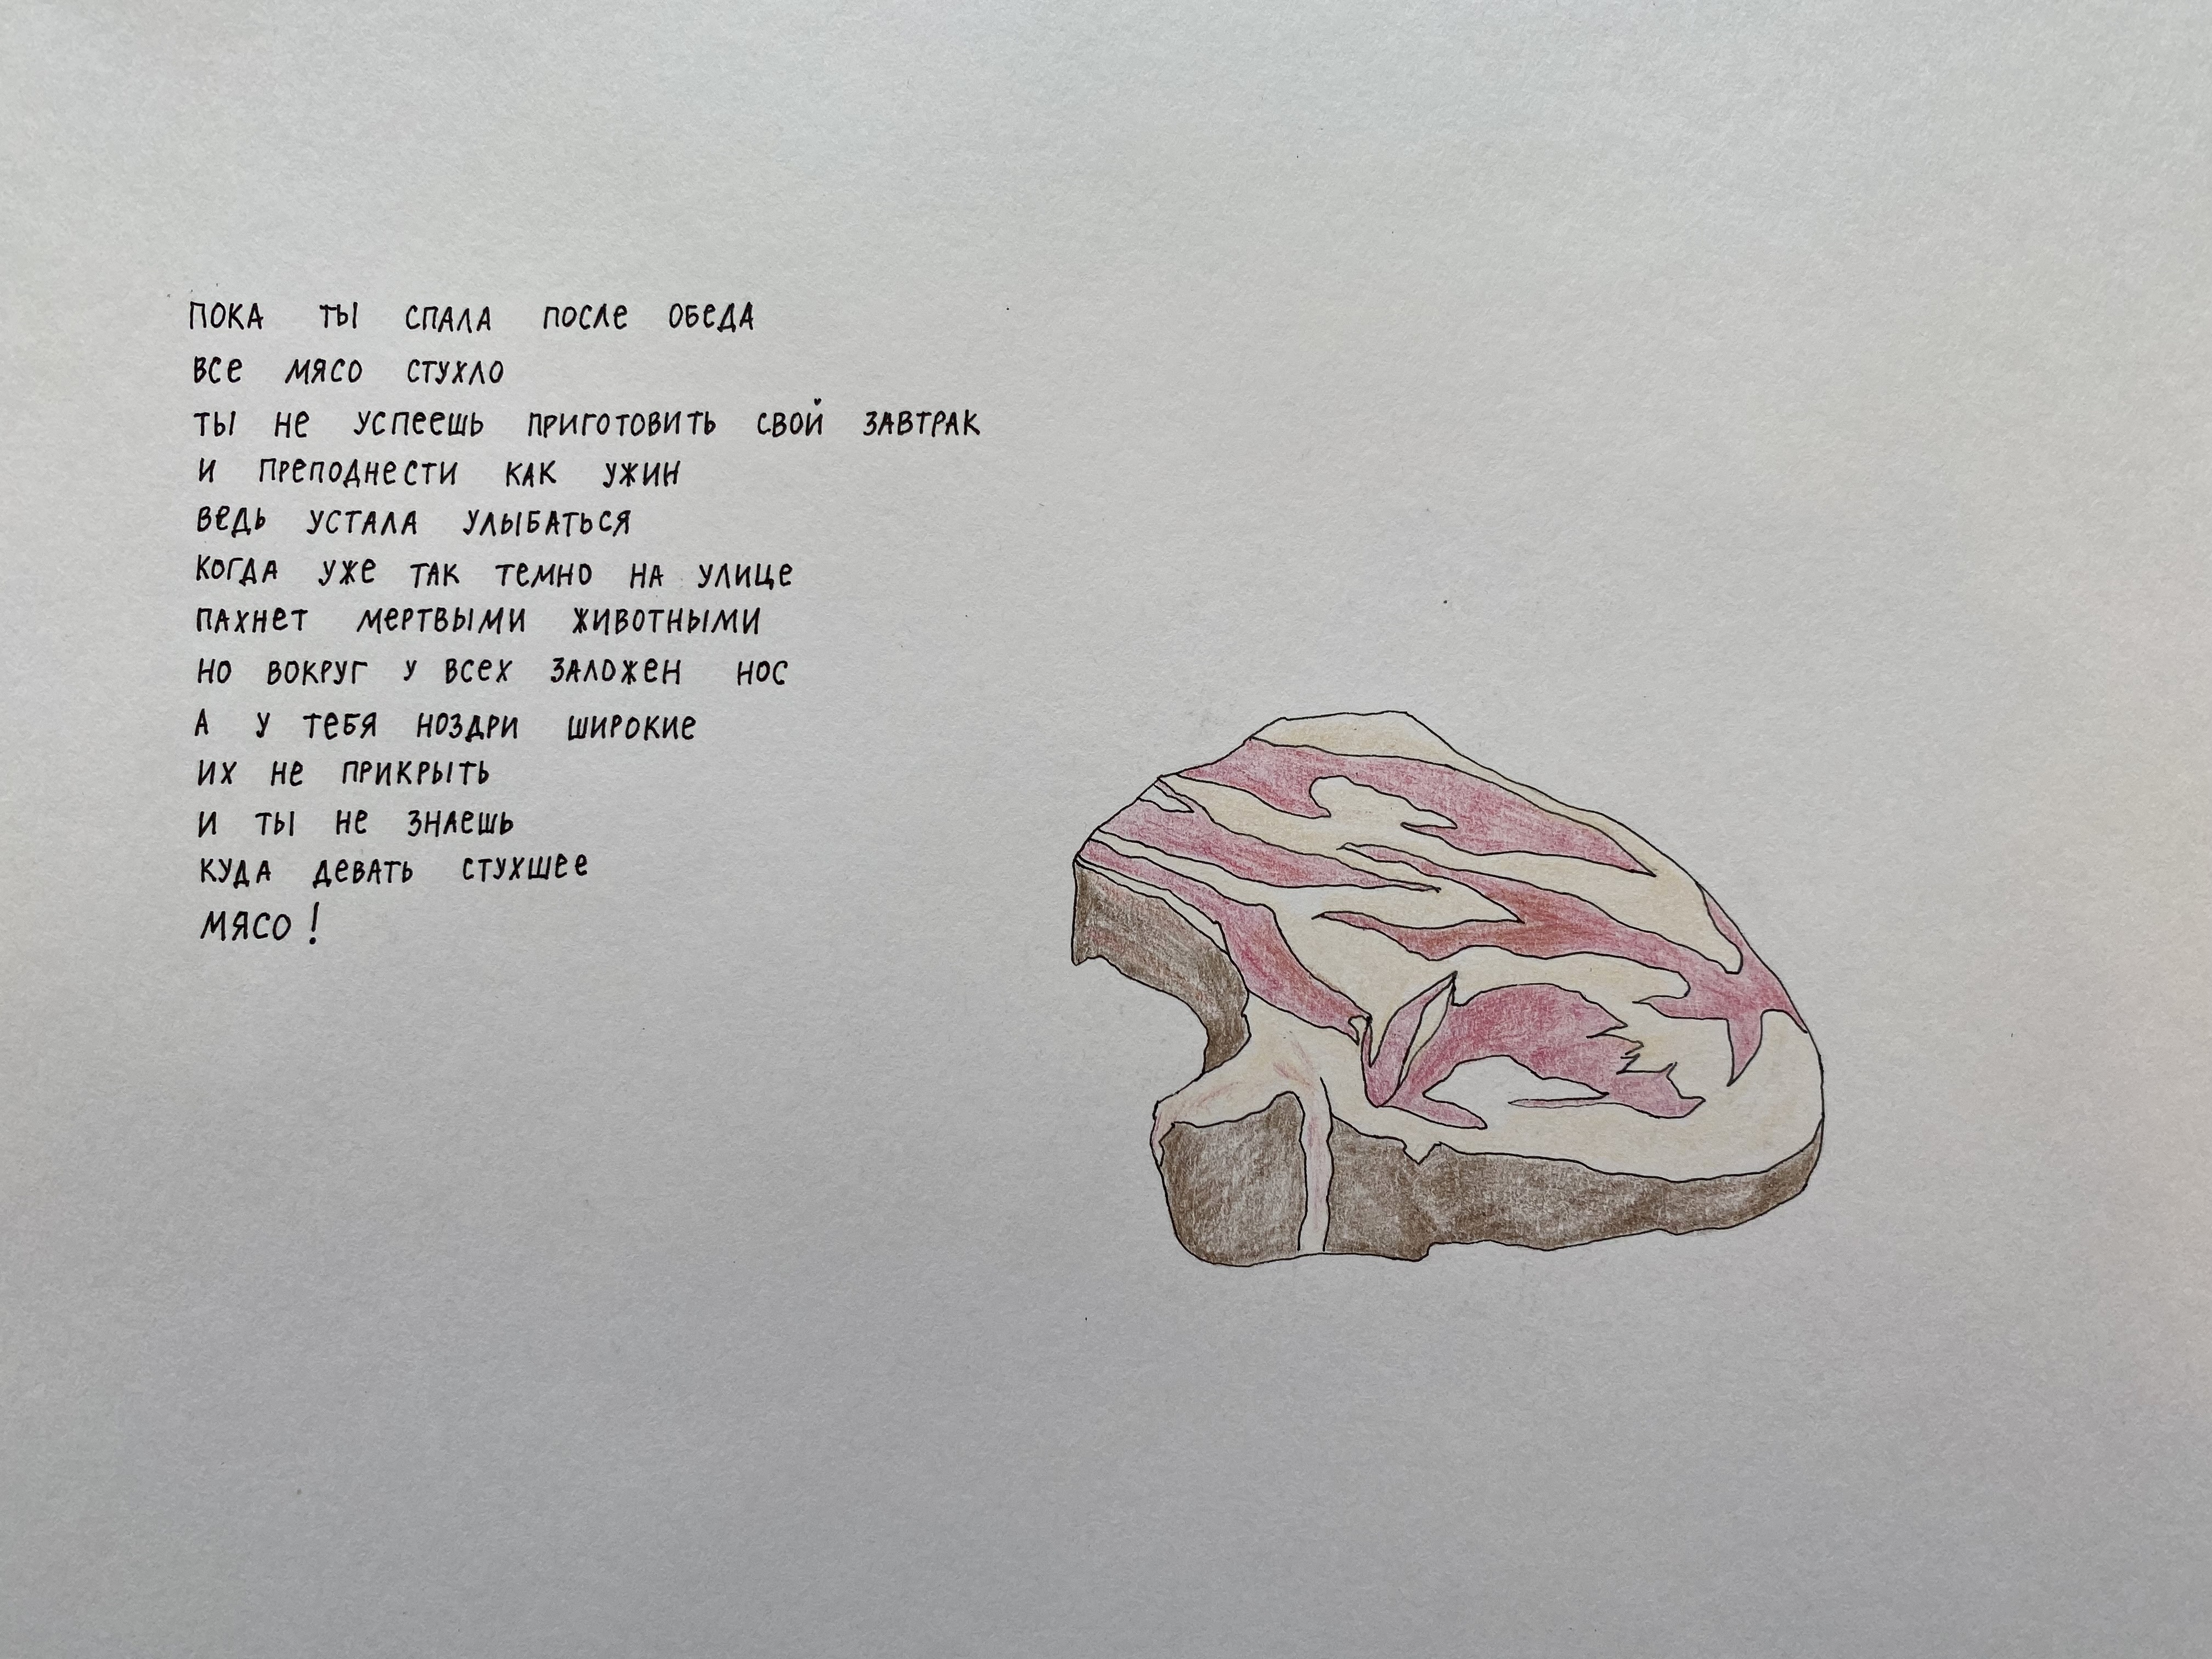 ПОКА ТЫ СПАЛА ПОСЛЕ ОБЕДА
ВСЕ МЯСО СТУХЛО
ТЫ НЕ УСПЕЕШЬ ПРИГОТОВИТЬ СВОЙ ЗАВТРАК
И ПРЕПОДНЕСТИ КАК УЖИН
ВЕДЬ УСТАЛА УЛЫБАТЬСЯ
КОГДА УЖЕ ТАК ТЕМНО НА УЛИЦЕ
ПАХНЕТ МЕРТВЫМИ ЖИВОТНЫМИ
НО ВОКРУГ У ВСЕХ ЗАЛОЖЕН НОС
А У ТЕБЯ НОЗДРИ ШИРОКИЕ
ИХ НЕ ПРИКРЫТЬ
И ТЫ НЕ ЗНАЕШЬ
КУДА ДЕВАТЬ СТУХШЕЕ
МЯСО!